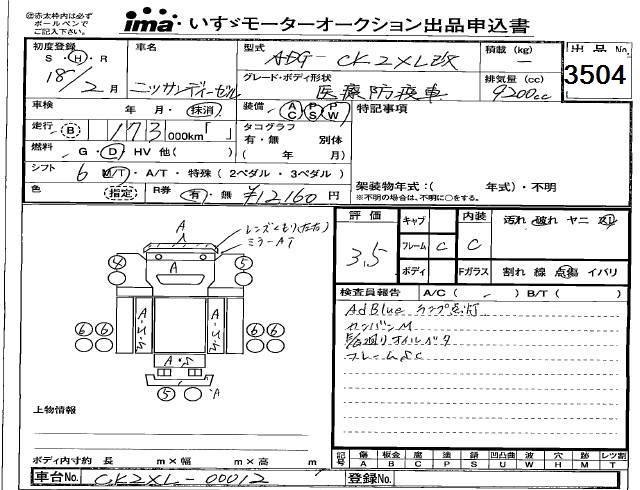 ㊟赤太枠内は必ず
ボールペンで
ご記入ください。
ima いすゞモーターオークション出品申込書
初度登録
S ・ H ・ R
18/2月
車名
ニッサンディーゼル
型式
ADG-CK2XL改
積載 (kg)
-
出品No.
3504
グレード・ボディ形状
医療防疫車
排気量 (cc)
9200cc
車検 年 月・ 抹消
装備 A/C P/S P/W
特記事項
走行 B 173 000km「 」
タコグラフ
有・無 別体
( 年 月)
燃料 G ・ D ・ HV 他( )
シフト 6 M/T ・ A/T ・ 特殊 ( 2ペダル ・ 3ペダル )
架装物年式:( 年式)・不明
※不明の場合は、不明に○をする。
色 指定 R券 有 ・ 無 ¥12160 円
評価
3.5
キャブ
内装 C
汚れ 破れ ヤニ
フレーム C
ボディ
Fガラス
割れ 線 点傷 イバリ
A
レンズくもり(左右)
ミラーAT
A
4 5
6 6 6 6
A・S
5 A
検査員報告 A/C ( ) B/T ( )
AdBlueランプ点灯
カンバンM
フレームSC
上物情報
ボディ内寸約 長 m×幅 m×高 m
記号 傷A 板金B 腐C 塗P 錆S 凹凸曲U 波W 穴H 跡M レツ割T
車台No. CK2XL-00012
登録No.